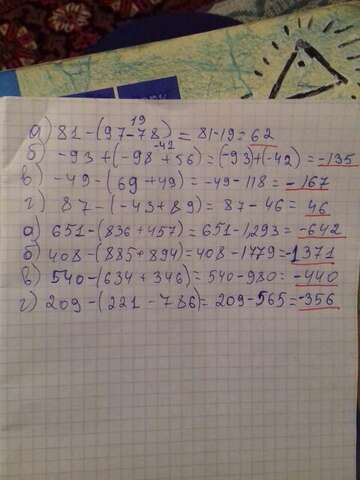 19
а) 81-(97-78) = 81-19=62
-42
б) -93+(-98+56)=(-93)+(-42)=-135
в) -49-(69+49)=-49-118=-167
г) 87-(-43+89)=87-46=46
а) 651-(836+457)=651-1293=-642
б) 408-(885+894)=408-1779=-1371
в) 540-(634+346)=540-980=-440
г) 209-(221-786)=209-565=-356